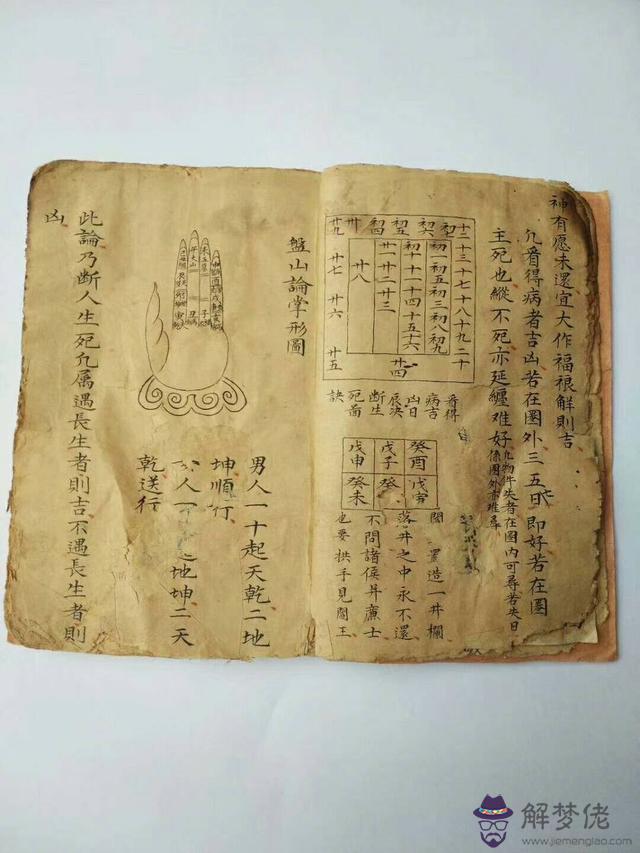 神有愿未還宜大作福禄解則吉
凡看得病者吉凶若在圈外三五日即好若在圈
主死也縱不死亦延纏难好
凡物件失者在圈内可尋若失日
係圈外亦难尋
十二十三十七十八十九二十
初六
初五
初四
卅
廿九
初一初五初三初八初九
初十十一十四十五十六
廿一廿二廿三
廿八
廿七
廿六
廿五
廿四
看得
病吉
凶日
辰决
断生
死啚
訣
癸酉
戊寅
戊子
癸
戊申
癸未
閻 造一井欄
落井之中永不還
不問諸侯并廉士
也要拱手見閻王
盤山論掌形圖
男人一十起天乾二地
坤順行
人一 地坤二天
乾送行
此論乃断人生死凡属遇長生者則吉不遇長生者則
凶
解梦佬
www.jiemenglao.com